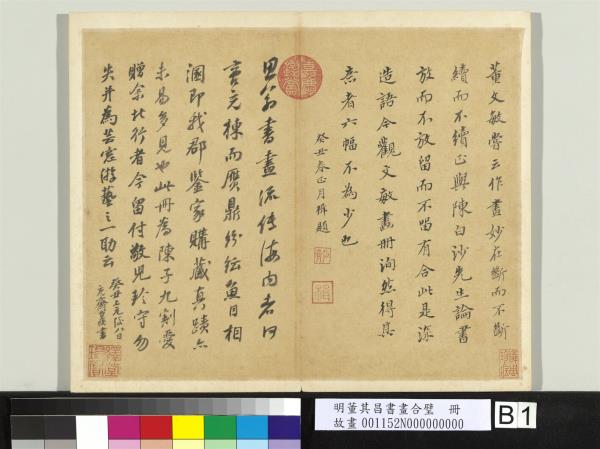 董文敏嘗云作畫妙在斷而不斷
續而不續正與陳白沙先生論書
放而不放留而不留有合此是深
造語今觀文敏畫冊洵然得其
意者六幅不為少也
癸丑春正月 題
思翁書畫流傳海内者日
言充棟而贋鼎紛紜魚目相
溷即我郡鑒家購藏真蹟亦
未易多見也此冊為陳子九割愛
贈余北行者今留付敬兒珍守勿
失并為芸窗游藝之一助云
癸丑上元後八日
明董其昌書畫合璧 冊
故畫 001152N000000000
B 1